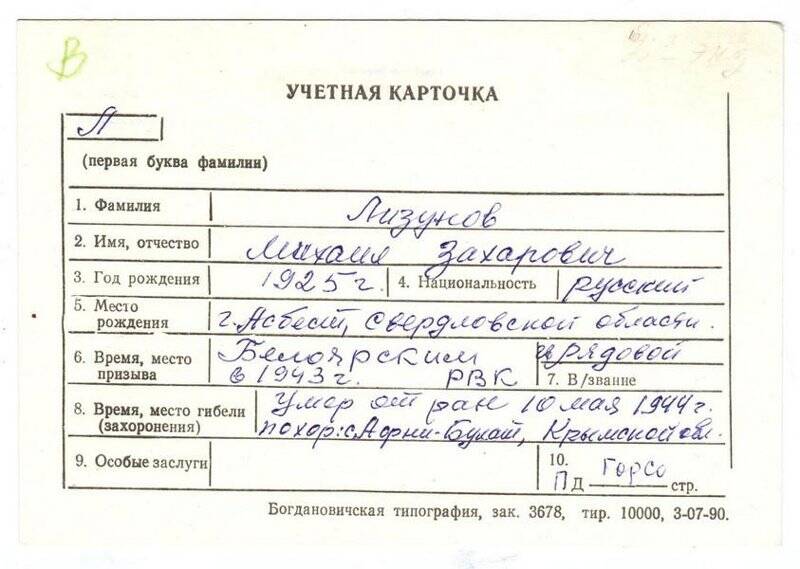 В
УЧЕТНАЯ КАРТОЧКА
Л
(первая буква фамилии)
1. Фамилия Лизунов
2. Имя, отчество Михаил Захарович
3. Год рождения 1925 г. 4. Национальность русский
5. Место рождения г. Асбест, Свердловской области.
6. Время, место призыва Белоярским РВК в 1943 г.
рядовой
7. В/звание
8. Время, место гибели (захоронения) Умер от ран 10 мая 1944 г.
похор: с. Афни-Булат, Крымской обл.
9. Особые заслуги
10. Горсо
ПД стр.
Богдановичская типография, зак. 3678, тир. 10000, 3-07-90.